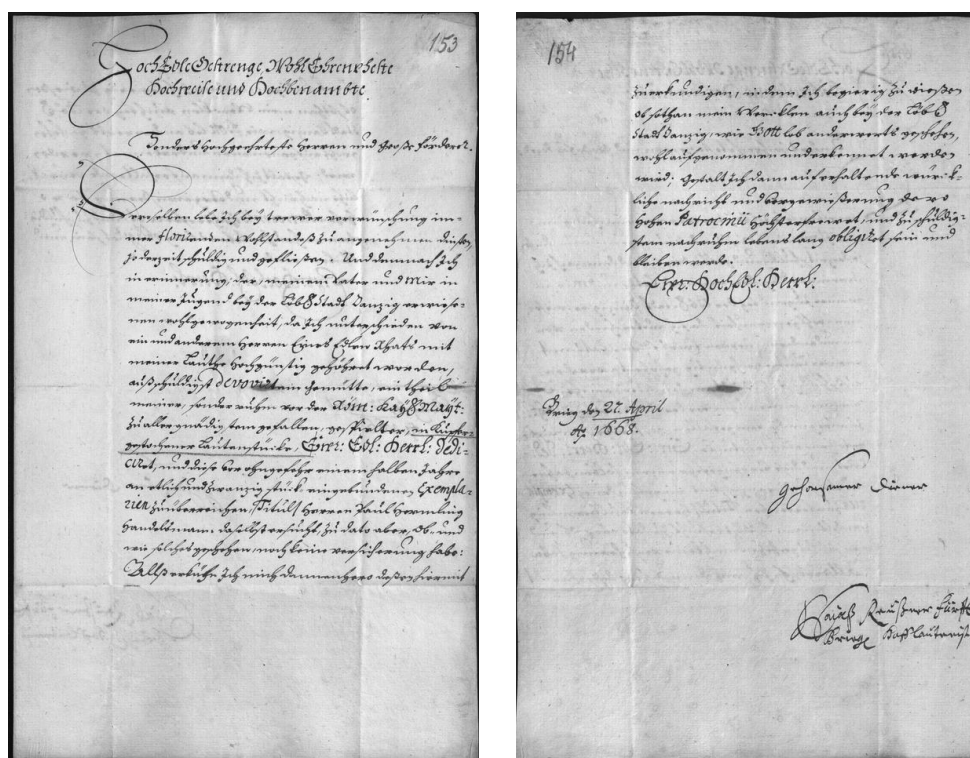 153
HochEdle Gestrenge, WohlEhrenveste
Hochweise und Hochbenambte
Jnsonders Hochgeehrteste Herren und Große Förderer.
Denselben lebe Ich bey trewer verwünschung im-
mer florirenden Wohlstandeß zu angenehmen diensten
jederzeit schuldig und gefließen. Und demnach Ich
in erinnerung, der, meinem Vater und mir in
meiner Jugend bey der Löbl. Stadt Danzig erwiese-
nen wohlgewogenheit, da Ich unterschieden von
ein und anderem Herren Eines Edlen Rhats mit
meiner Lauthe Hochgünstig gehöhret worden,
auß schuldigst devovirtem gemütte, ein theil
meiner, sonder ruhm vor der Röm: Kayß Mayt:
zu aller gnädigstem gefallen, gespielter, in Kupfer
gestochener Lautenstücke, Eurer: Edl: Herrl: Dedi-
ciret, und diese vor ohngefehr einem halben Jahre
an etlich und zwanzig stück eingebundenen Exempla-
rien zu überreichen, (Titul) Herren Paul Hermling
Handelßmann daselbst ersucht, zu dato aber, ob, und
wie solches geschehen, noch keine versicherung habe:
Alß erkühne Ich mich dannenhero deßen hiermit
154
zu erkundigen, in dem Ich begierig zu wießen
ob sothan mein Wercklen auch bey der Löbl.
Stadt Danzig, wie Gott lob anderwerts geschehen,
wohl aufgenommen und erkennet werden
wird; gestalt Ich dann auf erhaltende würck-
liche nachricht und vergewießerung dero
hohen Patrocinii höchst erfrewet, und zu schuldig-
stem nachruhm lebenslang obligiret sein und
bleiben werde.
Eurer: HochEdl: Herrl:
Brieg den 27. April
Aō. 1668.
gehorsamer Diener
Esaiaß Reußner Fürstl
Briegl Hofflautenist